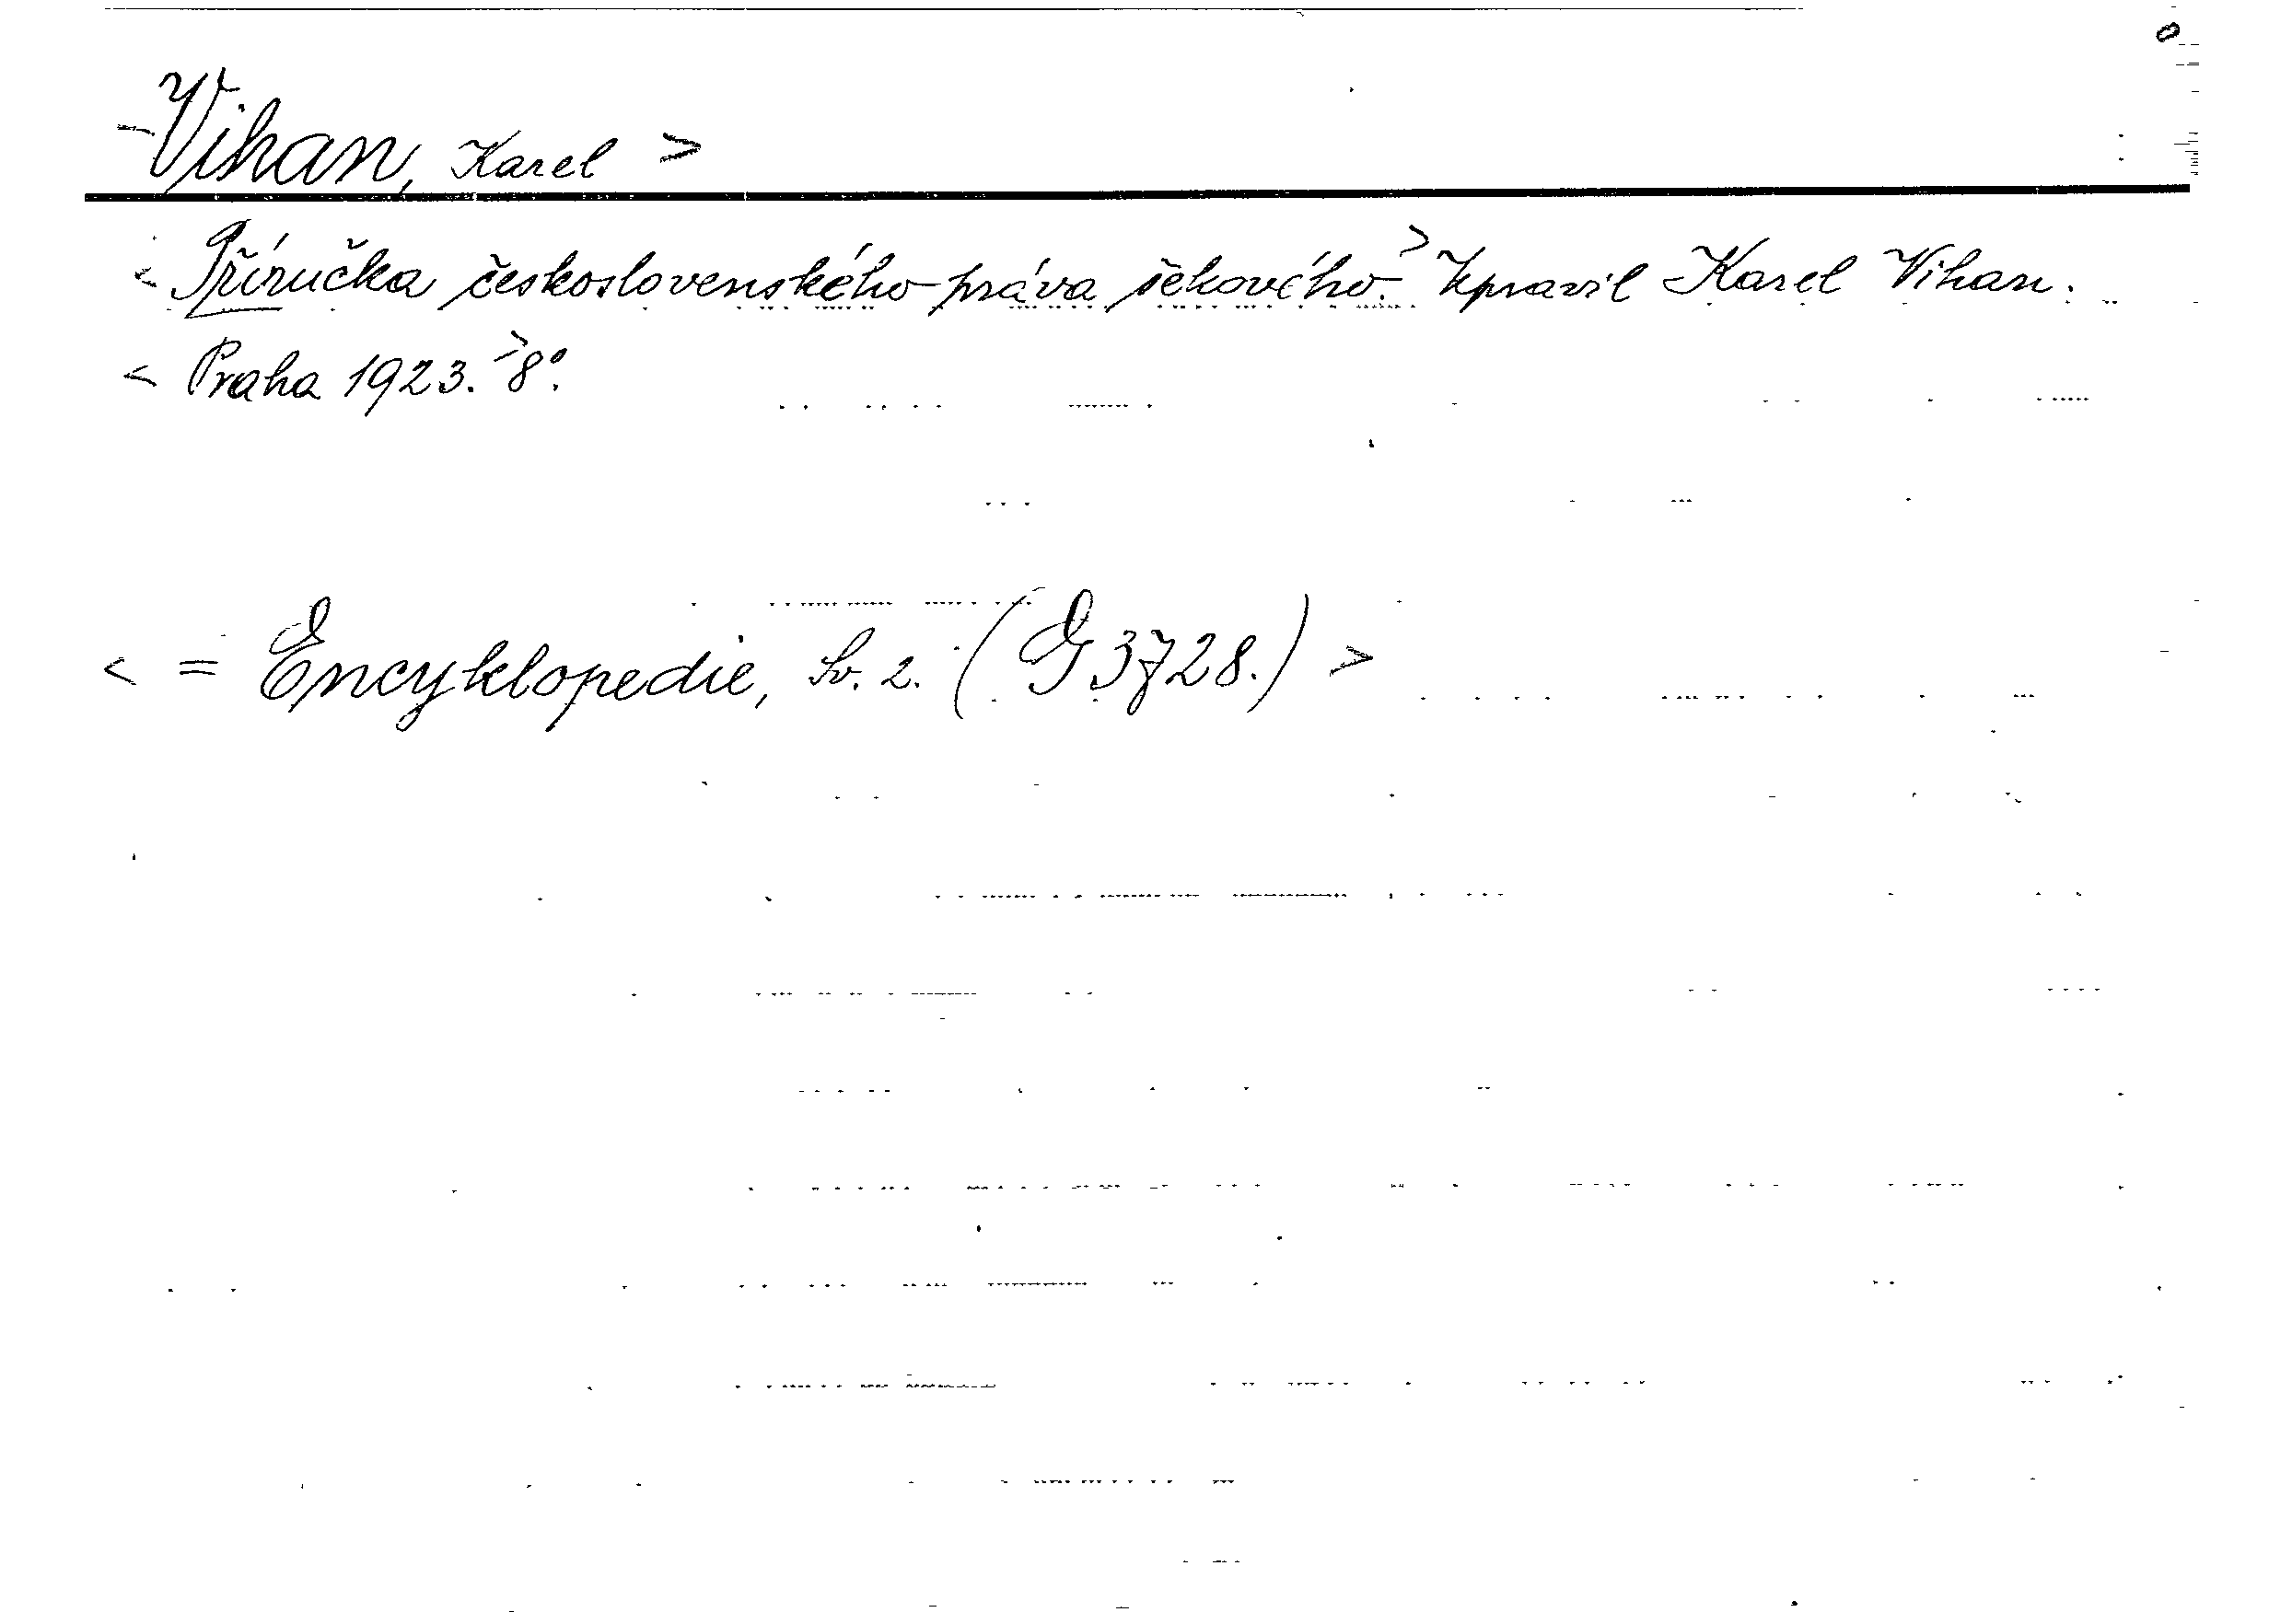 Vihan, Karel >
< Příručka československého práva šekového.> Upravil Karel Vihan.
< Praha 1923.> 8°.
< = Encyklopedie, Sv. 2. (G 3728.) >